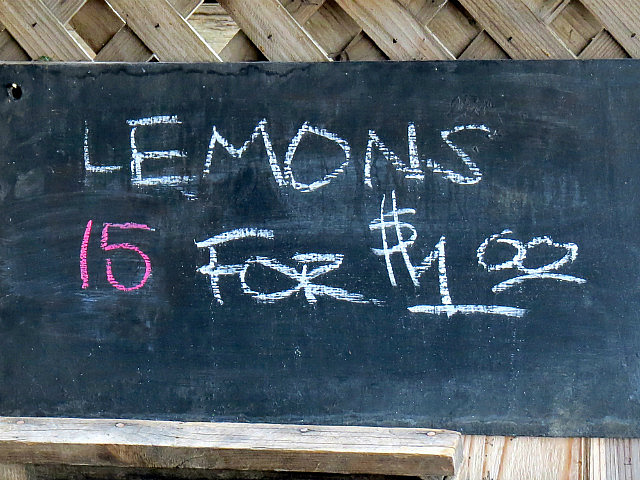 LEMONS
15 FOR $1.00